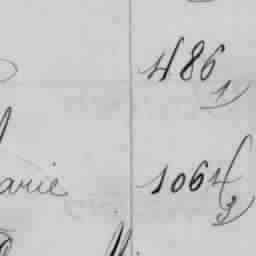 486
1)
arie 1064
3)